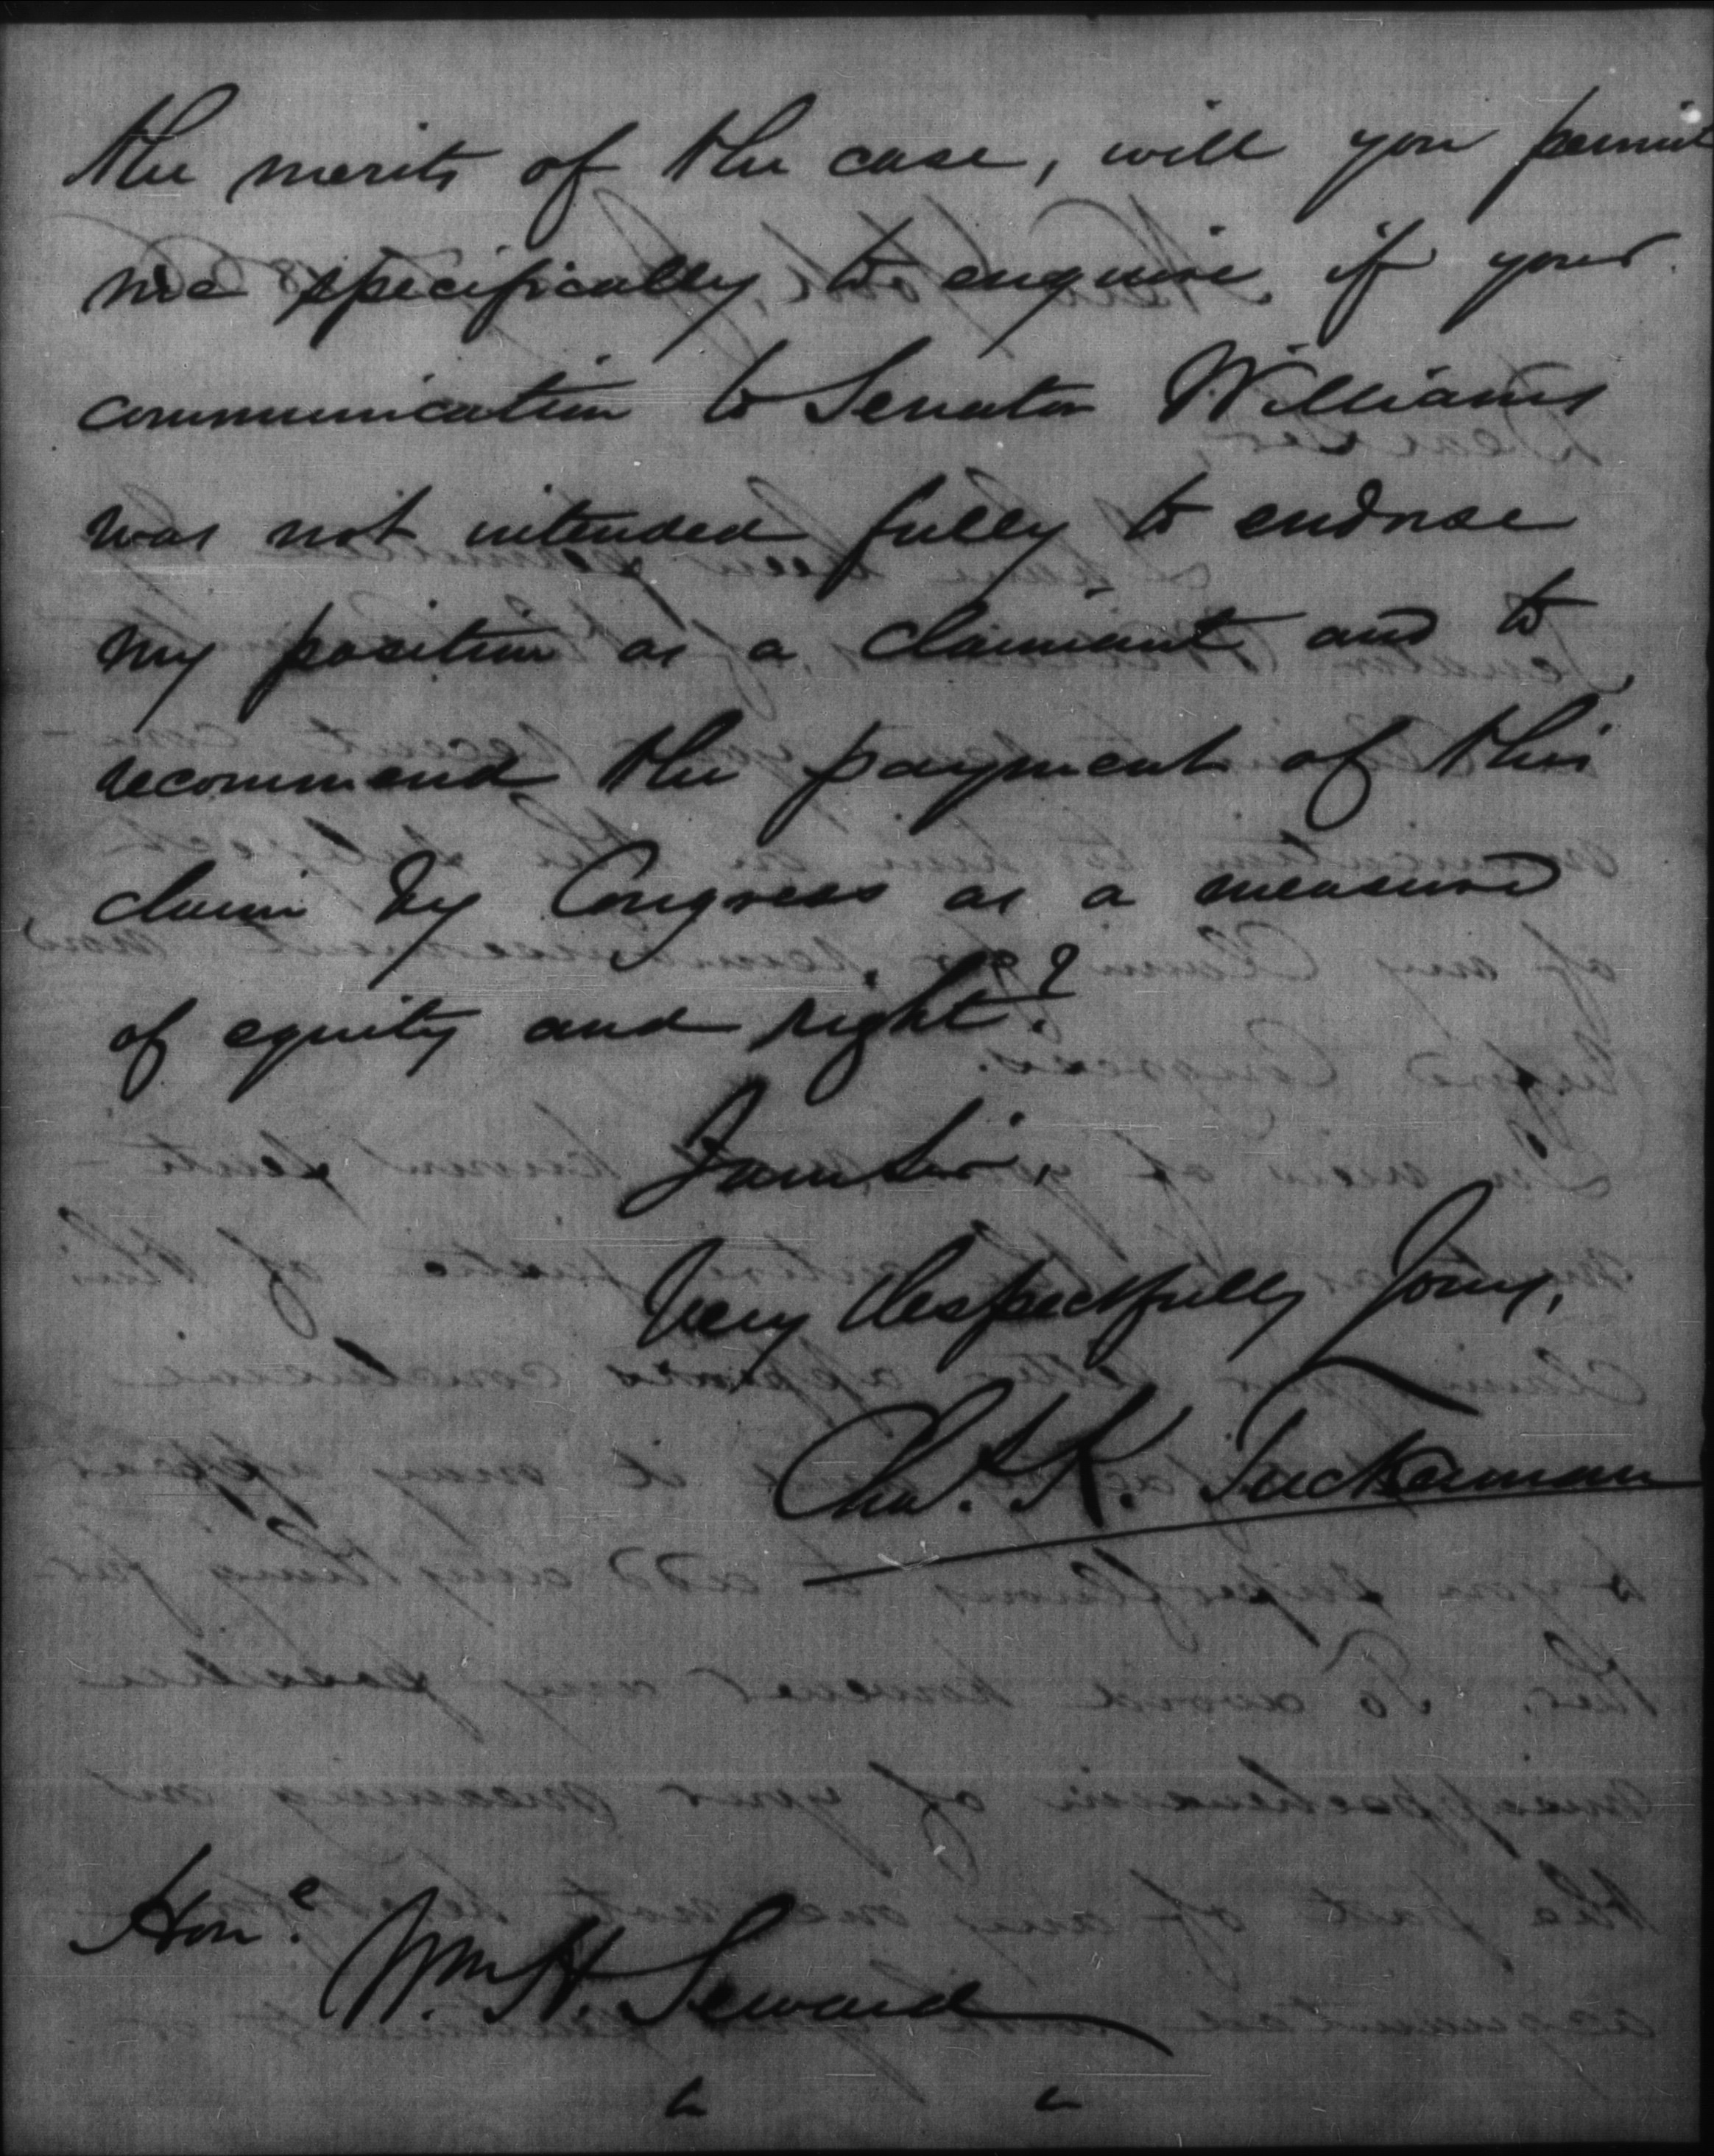 the merits of the case, will you permit
me specifically to enquire if your
communication to Senator Williams
was not intended fully to endorse
my position as a claimant and to
recommend the payment of this
claim by Congress as a measure
of equity and right?
I am Sir,
Very Respectfully Yours,
Chas. K. Tuckerman
Hon.e Wm. H. Seward